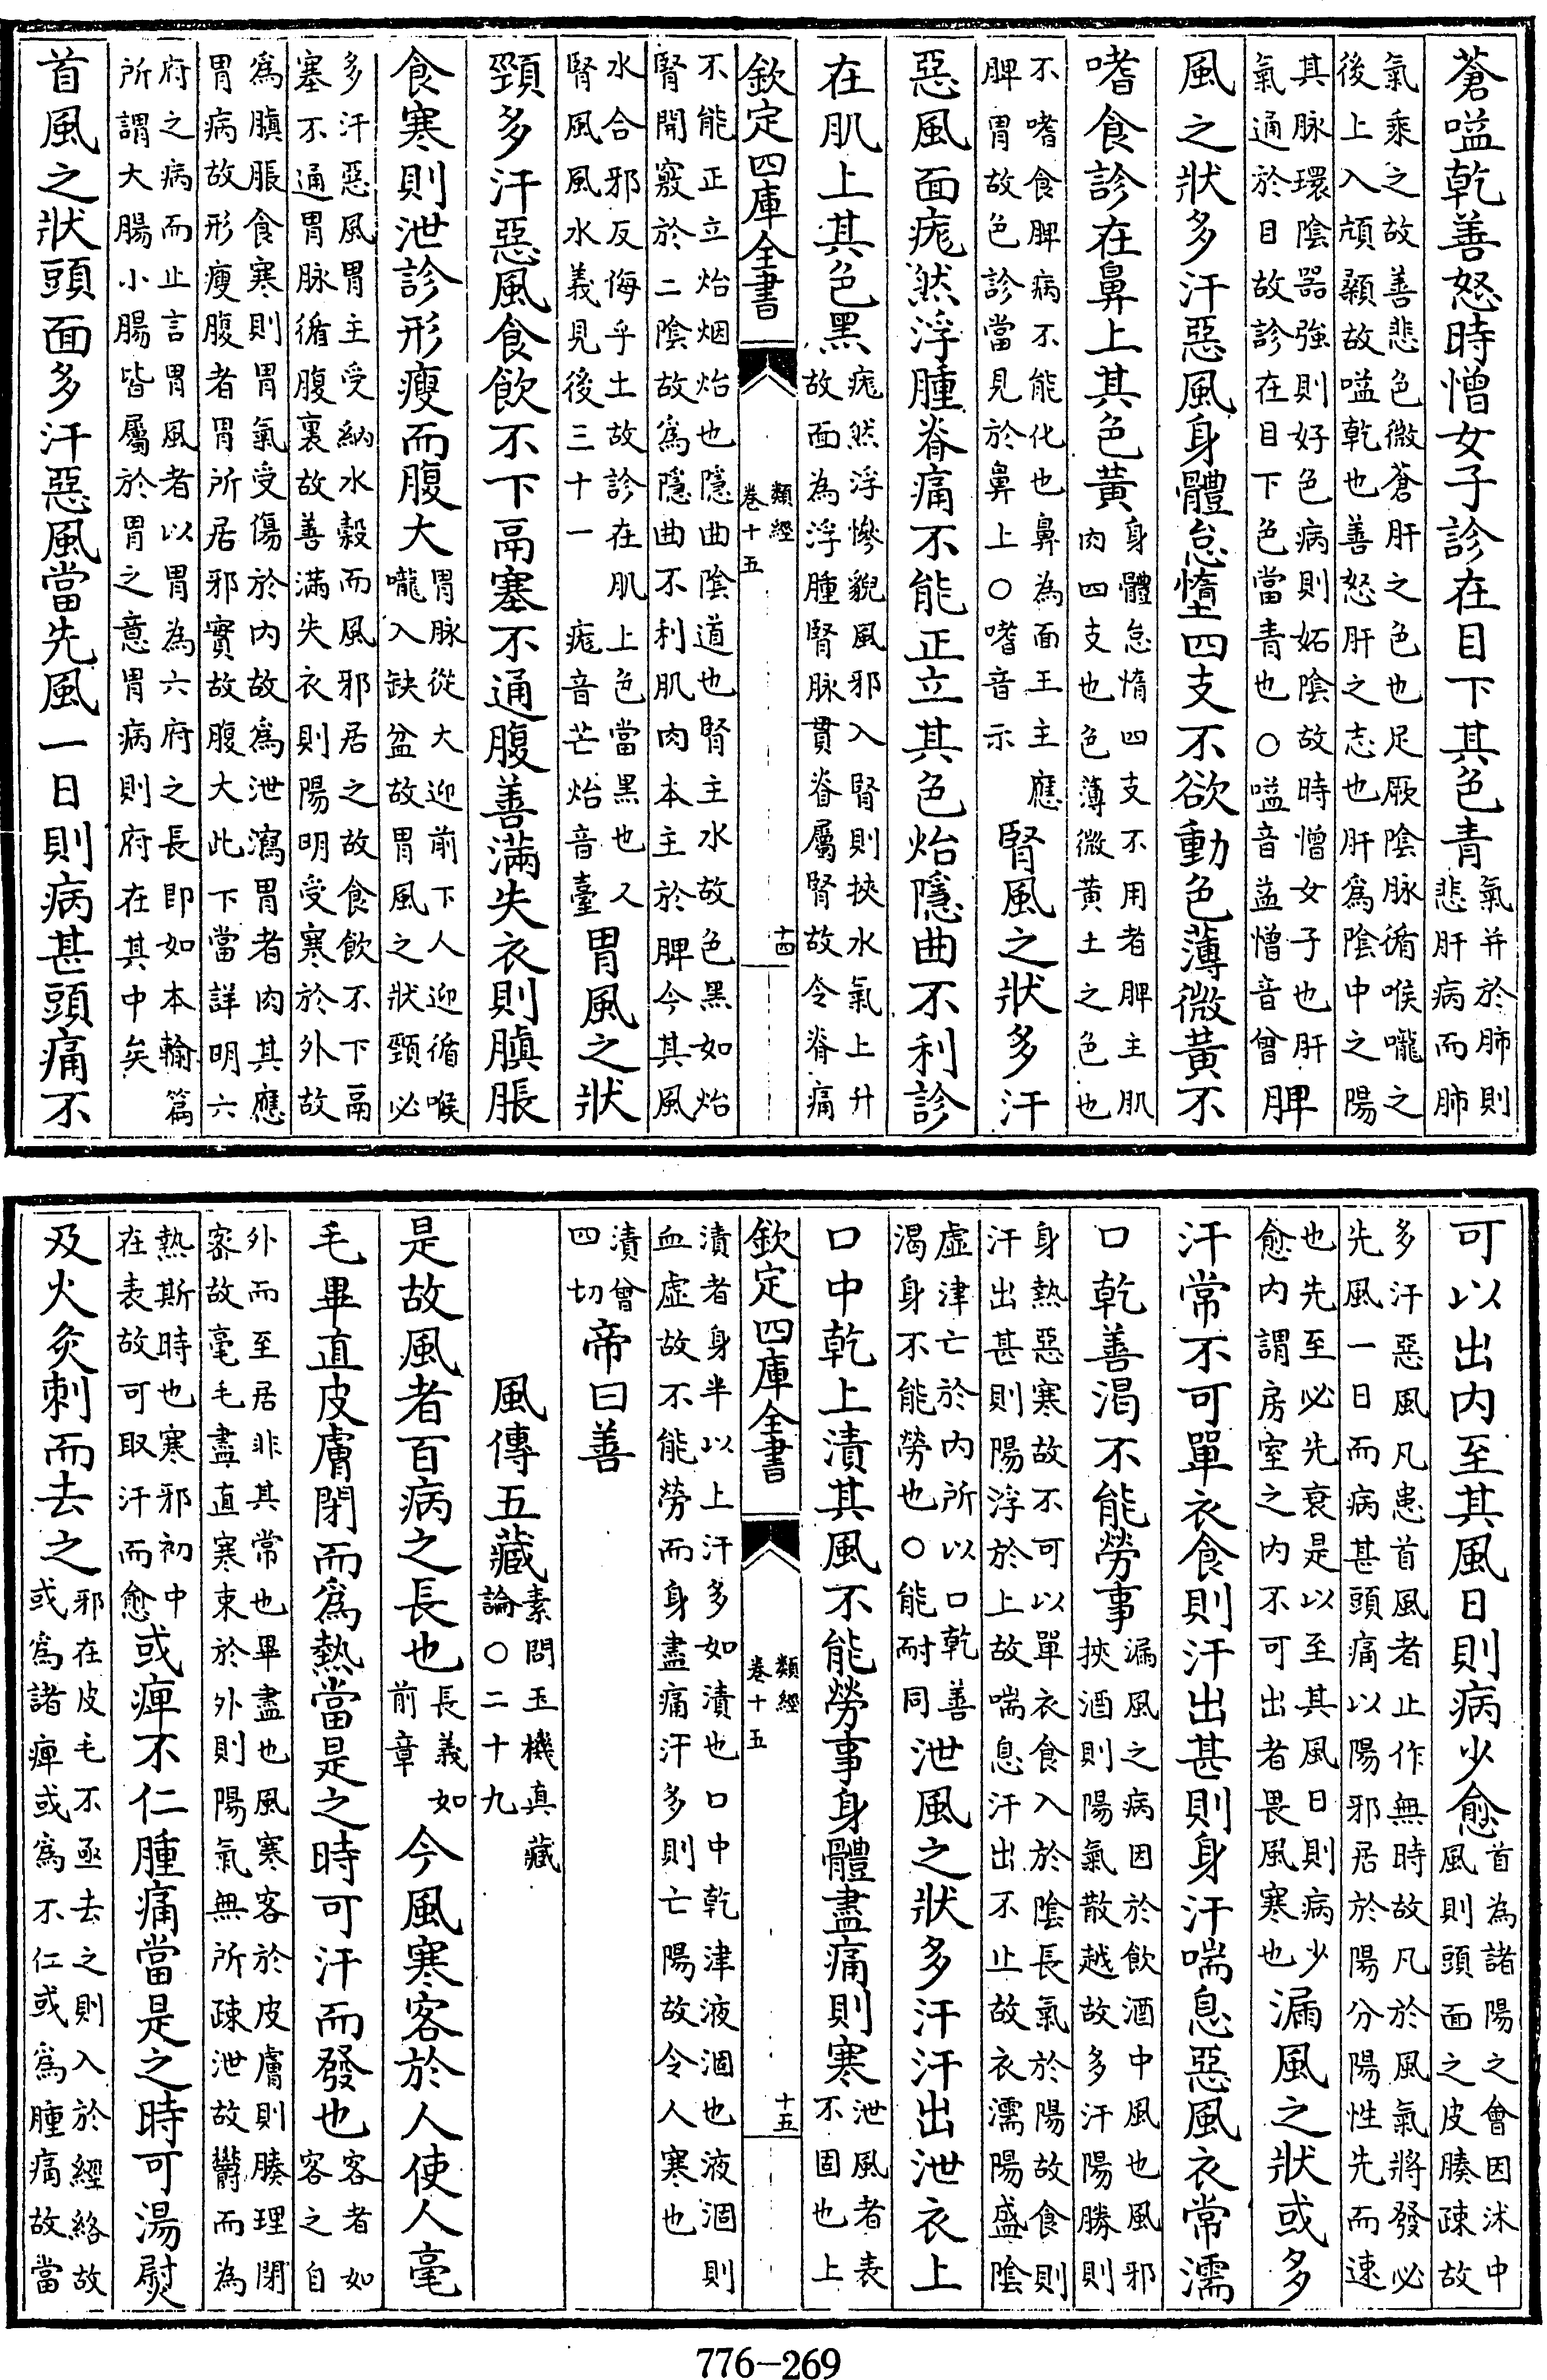 蒼嗌乾善怒時憎女子診在目下其色青氣并於肺則悲肝病而肺
氣乘之故善悲色微蒼肝之色也足厥陰脉循喉嚨之後上入頏顙故嗌乾也善怒肝之志也肝爲陰中之陽
其脉環陰器強則好色病則妬陰故時憎女子也肝氣通於目故診在目下色當青也○嗌音益憎音曾脾
風之狀多汗惡風身體怠墮四支不欲動色薄微黃不
嗜食診在鼻上其色黃身體怠惰四支不用者脾主肌肉四支也色薄微黄土之色也
不嗜食脾病不能化也鼻為面王主應脾胃故色診當見於鼻上○嗜音示腎風之狀多汗
惡風面痝然浮腫脊痛不能正立其色炲隱曲不利診
在肌上其色黑痝然浮慘貌風邪入腎則挾水氣上升故面為浮腫腎脉貫脊屬腎故令脊痛
欽定四庫全書 類經 卷十五 十四
不能正立炲烟炲也隱曲陰道也腎主水故色黑如炲腎開竅於二陰故爲隱曲不利肌肉本主於脾今其風
水合邪反侮乎土故診在肌上色當黑也又腎風風水義見後三十一痝音芒炲音臺胃風之狀
頸多汗惡風食飲不下鬲塞不通腹善滿失衣則䐜脹
食寒則泄診形瘦而腹大胃脉從大迎前下人迎循喉嚨入缺盆故胃風之狀頸必
多汗惡風胃主受納水穀而風邪居之故食飲不下鬲塞不通胃脉循腹裏故善滿失衣則陽明受寒於外故
爲䐜脹食寒則胃氣受傷於内故爲泄瀉胃者肉其應胃病故形瘦腹者胃所居邪實故腹大此下當詳明六
府之病而止言胃風者以胃為六府之長即如本輸篇所謂大腸小腸皆屬於胃之意胃病則府在其中矣
首風之狀頭面多汗惡風當先風一日則病甚頭痛不
可以出内至其風日則病少愈首為諸陽之會因沐中風則頭面之皮腠疎故
多汗惡風凡患首風者止作無時故凡於風氣將發必先風一日而病甚頭痛以陽邪居於陽分陽性先而速
也先至必先衰是以至其風日則病少愈内謂房室之内不可出者畏風寒也漏風之狀或多
汗常不可單衣食則汗出甚則身汗喘息惡風衣常濡
口乾善渴不能勞事漏風之病因於飲酒中風也風邪挾酒則陽氣散越故多汗陽勝則
身熱惡寒故不可以單衣食入於陰長氣於陽故食則汗出甚則陽浮於上故喘息汗出不止故衣濡陽盛陰
虛津亡於内所以口乾善渴身不能勞也○能耐同泄風之狀多汗汗出泄衣上
口中乾上漬其風不能勞事身體盡痛則寒泄風者表不固也上
欽定四庫全書 類經 卷十五 十五
漬者身半以上汗多如漬也口中乾津液涸也液涸則血虛故不能勞而身盡痛汗多則亡陽故令人寒也
漬曾四切帝曰善
風傳五藏素問玉機真藏論○二十九
是故風者百病之長也長義如前章今風寒客於人使人毫
毛畢直皮膚閉而爲熱當是之時可汗而發也客者如客之自
外而至居非其常也畢盡也風寒客於皮膚則腠理閉密故毫毛盡直寒束於外則陽氣無所疎泄故鬱而為
熱斯時也寒邪初中在表故可取汗而愈或痺不仁腫痛當是之時可湯熨
及火灸刺而去之邪在皮毛不亟去之則入於經絡故或爲諸痺或爲不仁或爲腫痛故當
776-269